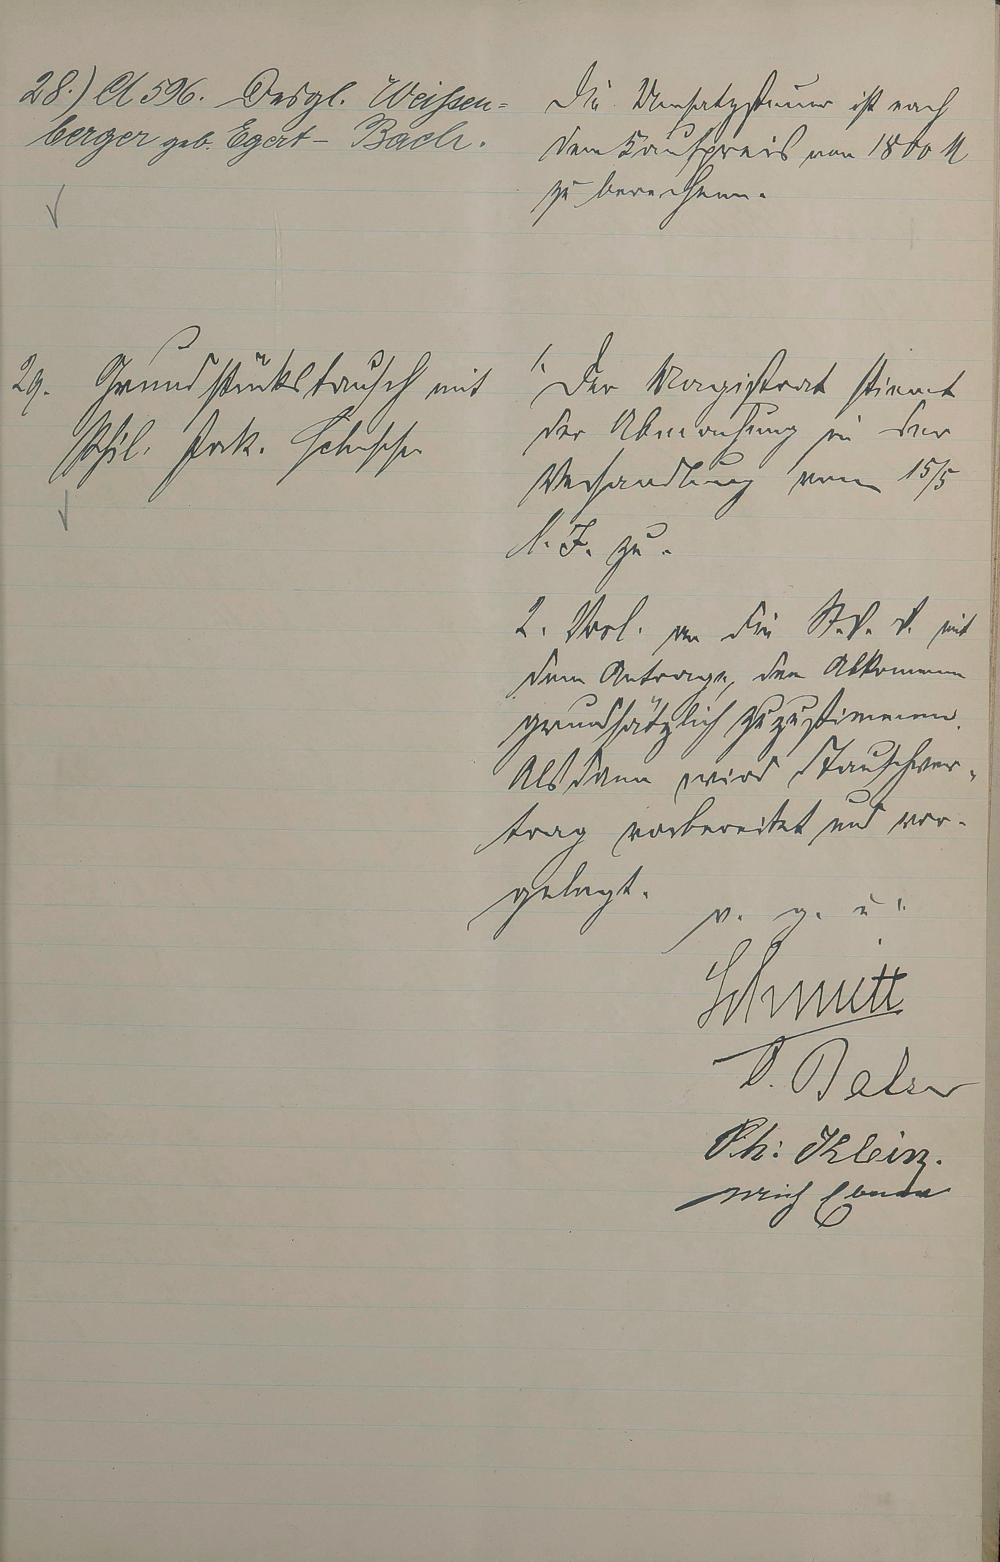 28.) A 596. Desgl. Weissen-
berger geb. Egert - Bach.
Die Umsatzsteuer ist nach
dem Kaufpreis von 1800 M
zu berechnen.
29. Grundstückstausch mit
Phil. Jak.
1. Der Magistrat stimmt
der Abmachung in der
Verhandlung vom 15/5
l. J. zu.
2. Vorl. an die St. V. V. mit
dem Antrage, dem Abkommen
grundsätzlich zuzustimmen.
Alsdann wird Tauschver-
trag vorbereitet und vor-
gelegt.
v. g. u.
Schmitt
Ph: Klein.